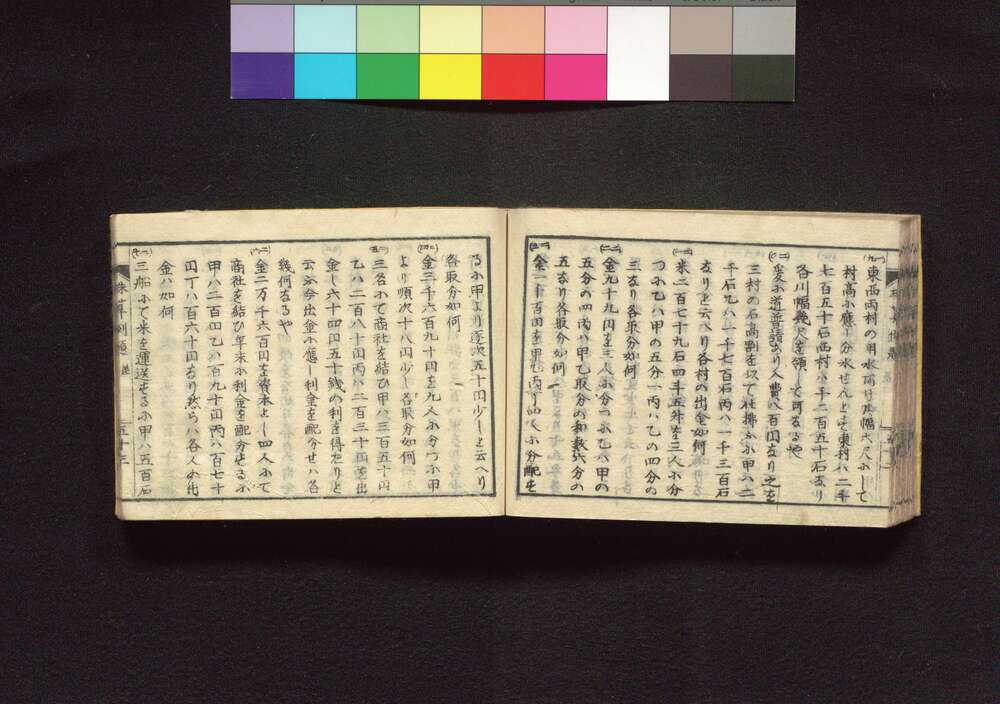 (一九)
東西両村の用水有り川幅六尺にして
村高に應し分水せんとす東村ハ二千
七百五十石西村ハ千二百五十石なり
各川幅幾尺を領して可なるや
(二〇)
爰に道普請あり入費八百円なり之を
三村の石高割を以て仕拂ふに甲ハ二
千石乙ハ一千七百石丙ハ一千三百石
なりと云へり各村の出金如何
(二一)
米二百七十九石四斗五升を三人に分
つに乙ハ甲の五分一丙ハ乙の四分の
三なり各取分如何
(二二)
金九十九円を三人に分つに乙ハ甲の
五分の四丙ハ甲乙取分の和数六分の
五なり各取分如何
(二三)
金一千百円を甲乙丙丁四人に分配す
るに甲より逐次五十円少しと云へり
各取分如何
(二四)
金三千六百九十円を九人に分つに甲
より順次十八円少し各取分如何
(二五)
三名にて商社を結ひ甲ハ三百五十円
乙ハ二百八十円丙ハ二百三十円を出
金し六十四円五十錢の利を得たりと
云ふ今出金に應し利金を配分せハ各
幾何なるや
(二六)
金二万千六百円を資本とし四人にて
商社を結ひ年末に利金を配分するに
甲ハ二百円乙ハ百九十円丙ハ百七十
円丁ハ百六十円なり然らハ各人の出
金ハ如何
(二七)
三船にて米を運送するに甲ハ五百石
珠算例題 差 五十三